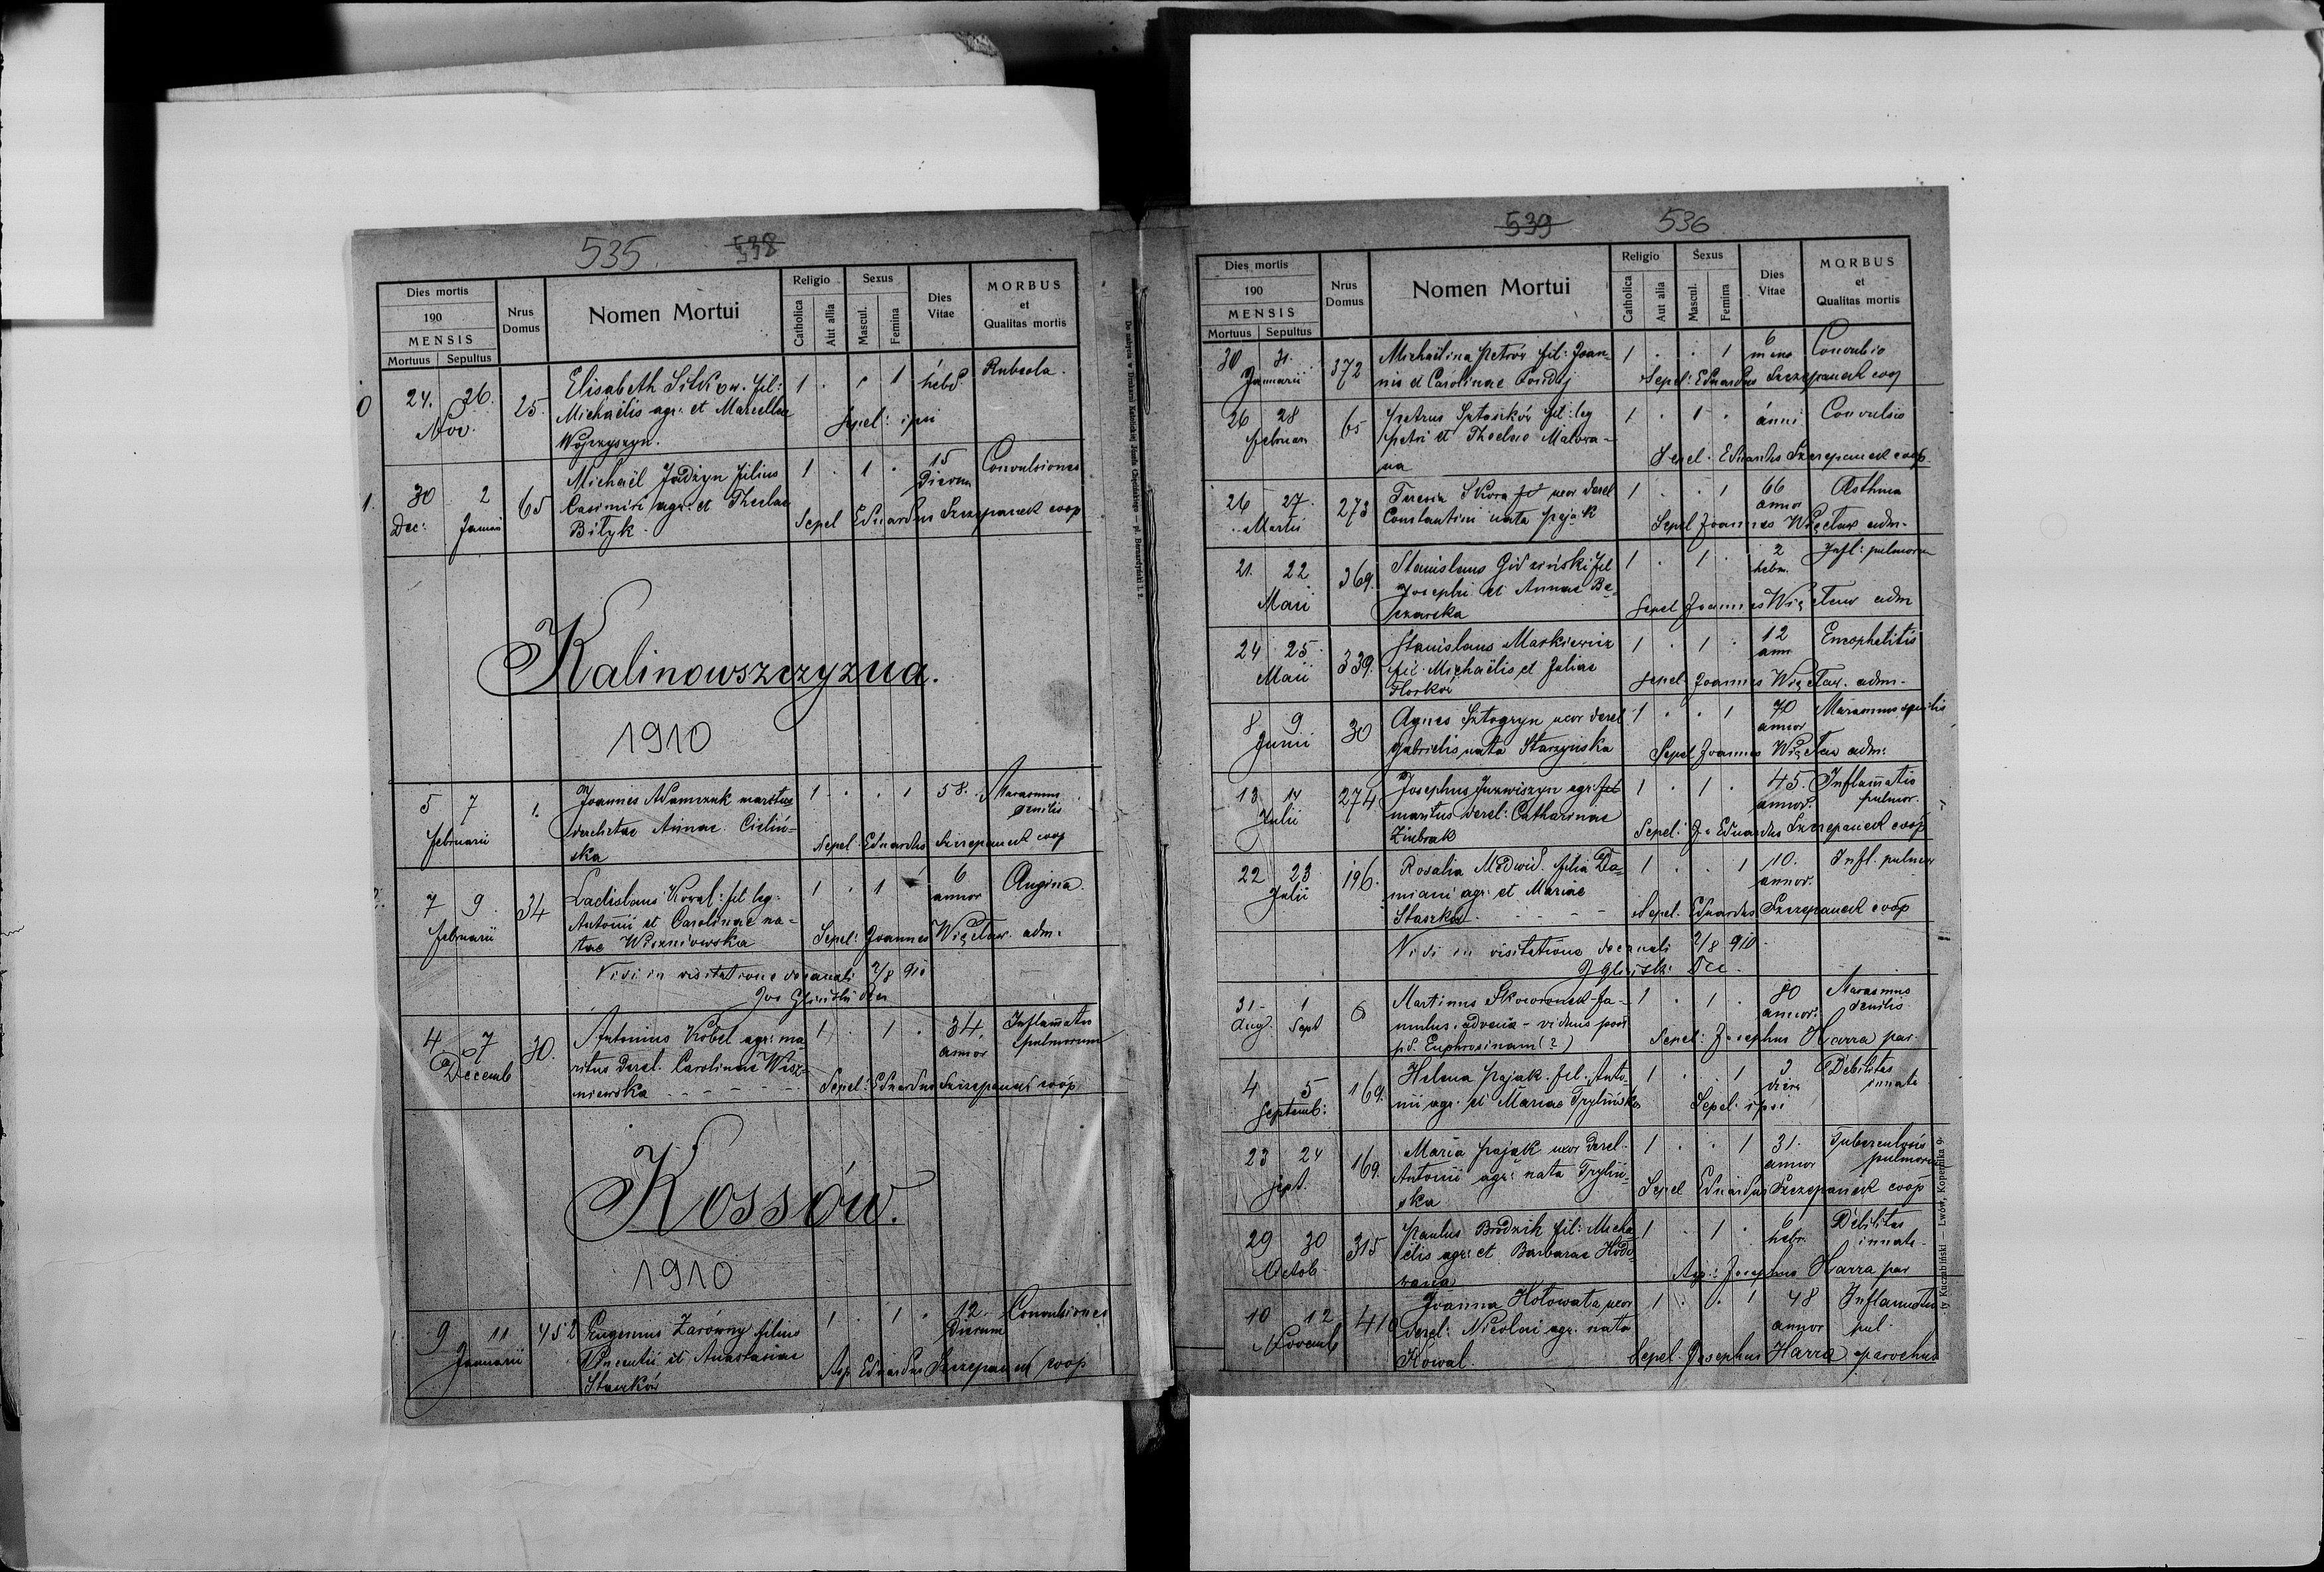 535. 538
Dies mortis
190
MENSIS
Mortuus Sepultus
Nrus Domus
Nomen Mortui
Religio
Catholica
Aut allia
Sexus
Mascul.
Femina
Dies Vitae
MORBUS
et
Qualitas mortis
24. 26. Nov. 25. Elisabeth Sitkow. fil: 1 . . 1 hebd Rubeola.
Michaëlis agr. et Marcellae Sepel: ipsi
30 2 Dec: 65 Michaël Jadzyn filius 1 . 1 . 15 dierum Convulsiones
Casimiri agr. et Theclae Sepel Eduardus Szczepanek coop
Bilyk.
Kalinowszczyzna.
1910
5 7 februarii 1. Joannes Adamczuk maritus 1 . . 1 58. Marasmus senilis
derelictae Annae Cieliń- Sepel. Eduardus Szczepanek coop
ska
7 9. februarii 34 Ladislaus Kowal: fil leg. 1 . 1 6 annor Angina.
Antonii et Carolinae na- Sepel: Joannes Więcław adm.
tae Wiszniowska
Vidi in visitatione decanali 2/8 910
Jos Gliński dec
4 7 Decemb 30. Antonius Kobel agr: ma- 1 . 1 . 34. annor Inflamatio pulmorum
ritus derel. Carolinae Wisz- Sepel: Eduardus Szczepanek coop
niewska - - -
Kossów.
1910
9 11 Januarii 452 Eugenius Zarówny filius 1 . 1 . 12 dierum Convulsiones
Vincentii et Anastasiae Eduardus Szczepanek coop
Staszków
539 536
Dies mortis
190
MENSIS
Mortuus Sepultus
Nrus Domus
Nomen Mortui
Religio
Catholica
Aut alia
Sexus
Mascul.
Femina
Dies Vitae
MORBUS
et
Qualitas mortis
30 31. Januarii 372 Michaëlina Petrów fil: Joan- 1 . . 1 6 Convulsio
nis et Carolinae Sepel: Eduardus Szczepanek coop
26 28 februar 65 Petrus fil: leg 1 . 1 . anni Convulsio
Petri et Theclae Sepel. Eduardus Szczepanek coop.
na
26 27. Martii 273 Teresia Skora fil uxor derel 1 . . 1 66 annor Asthma
Constantini nata Pająk Sepel Joannes Więcław adm.
21. 22 Maii 369. Stanislaus fil 1 . 1 . 2 Infl: pulmorum
Josephi et Annae Sepel Joannes Więcław adm
24 25. Maii 339. Stanislaus Markiewicz 1 . 1 . 12 ann Encephelitis
fil. Michaëlis et Juliae Sepel. Joannes Więcław. adm.
8 9 Junii 30 Agnes Sztogryn uxor derel 1 . . 1 70 annor Marasmus senilis
Gabrielis nata Starzyńska Sepel Joannes Więcław adm:
13. 14 Julii 274 Josephus Juzwiszyn agr. fil 1 . 1 . 45. annor. Inflamatio pulmor.
maritus derel: Catharinae Sepel: Eduardus Szczepanek coop
Zimbrak
22 23 Julii 196. Rosalia Medwid. filia Da- 1 . . 1 10. annor. Infl. pulmor
miani agr. et Mariae Sepel. Eduardus Szczepanek coop
Staszków - - -
Vidi in visitatione decanali 2/8 910.
J Gliński Dec.
31. 1 Aug. Sept 6 Martinus Skowronek - fa- 1 . 1 . 80 annor. Marasmus senilis
mulus, advena - viduus post Sepel: Josephus Harra par.
p d. Euphrosinam (?)
4 5 Septemb: 169. Helena Pająk. fil. Anto- 1 . . 1 3 dier. Debilitas innata
nii agr. et Mariae Trylińska Sepel. ipsi
23 24 Sept. 169. Maria Pająk uxor derel. 1 . . 1 31. annor Tuberculosis pulmorum
Antonii agr. nata Tryliń- Sepel Eduardus Szczepanek coop
ska
29 30 Octob 315 Paulus Brodzik fil: Micha- 1 . 1 . 6 hebd. Debilitas innata.
ëlis agr. et Barbarae Hodo- Josephus Harra par
wana
10 12 Novemb 410 Joanna Hołowata uxor 1 . . 1 48 annor Inflamatio pul.
derel: Nicolai agr. nata Sepel. Josephus Harra parochus
Kowal.